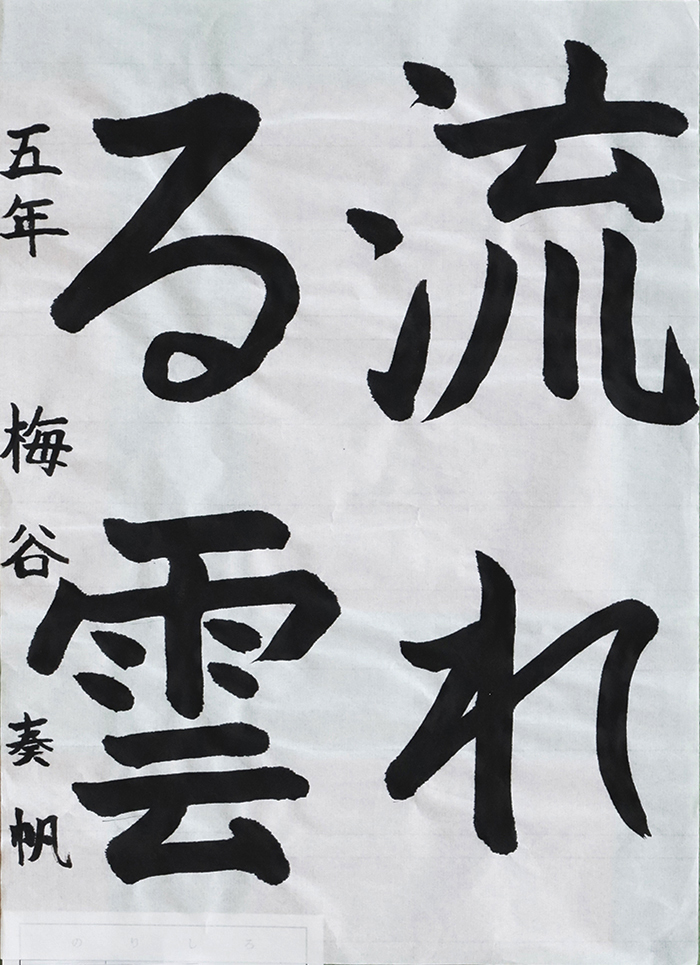 流れ
る雲
五年 梅谷奏帆
のりしろ